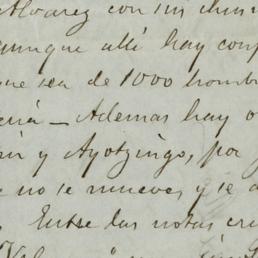 Alvarez con su divis
aunque allí hay con
que sea de 1000 hombr
erá - Ademas hay o
y Ayotzingo, por
e no se mueve, y se
Entre las notas